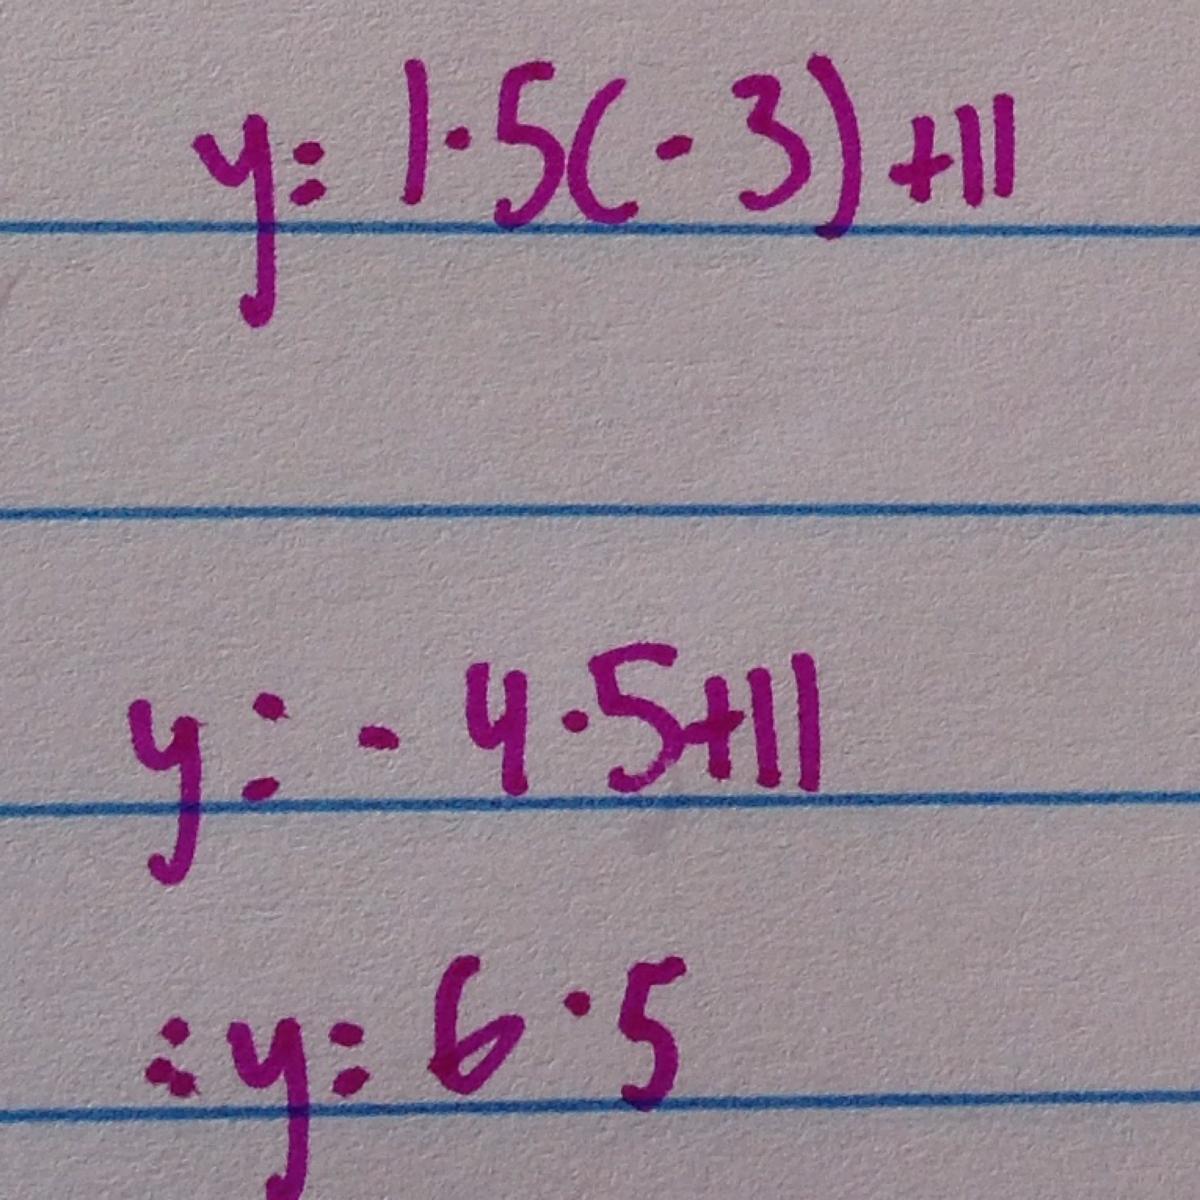 y = 1·5(-3)+11
y = -4·5+11
∴ y = 6·5